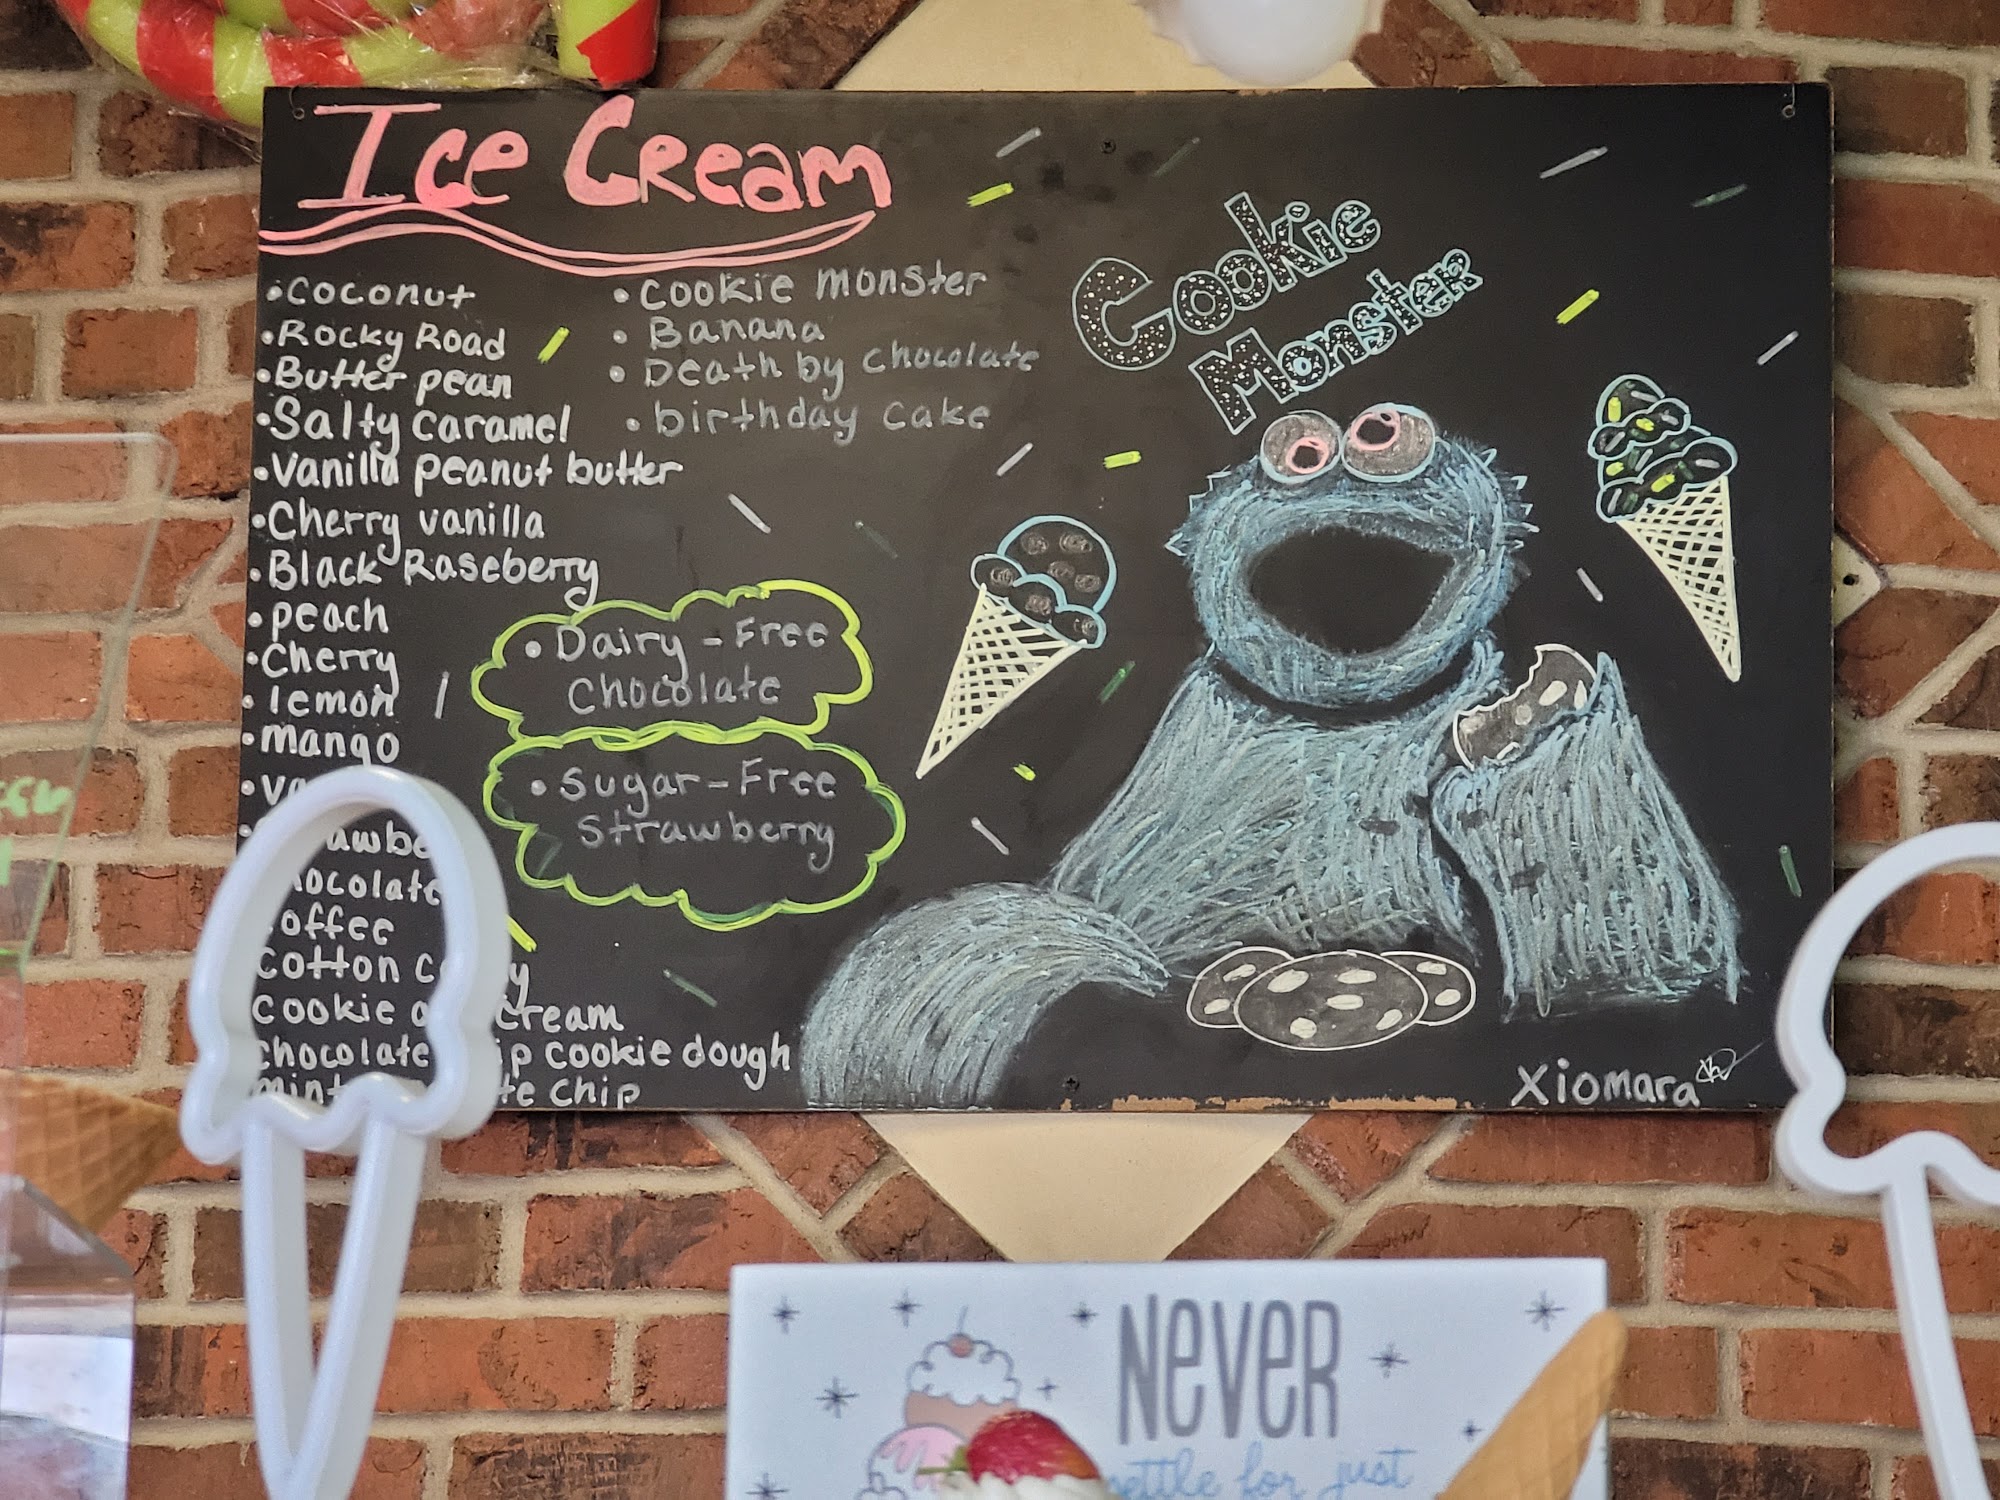 Ice Cream
• coconut
• Rocky Road
• Butter pean
• Salty caramel
• Vanilla peanut butter
• Cherry vanilla
• Black Raseberry
• peach
• Cherry
• lemon
• mango
offee
cotton
cookie cream
chocolate cookie dough
mint chip
• cookie monster
• Banana
• Death by chocolate
• birthday cake
• Dairy-Free
chocolate
• Sugar-Free
Strawberry
Cookie
Monster
Xiomara
Never
settle for just